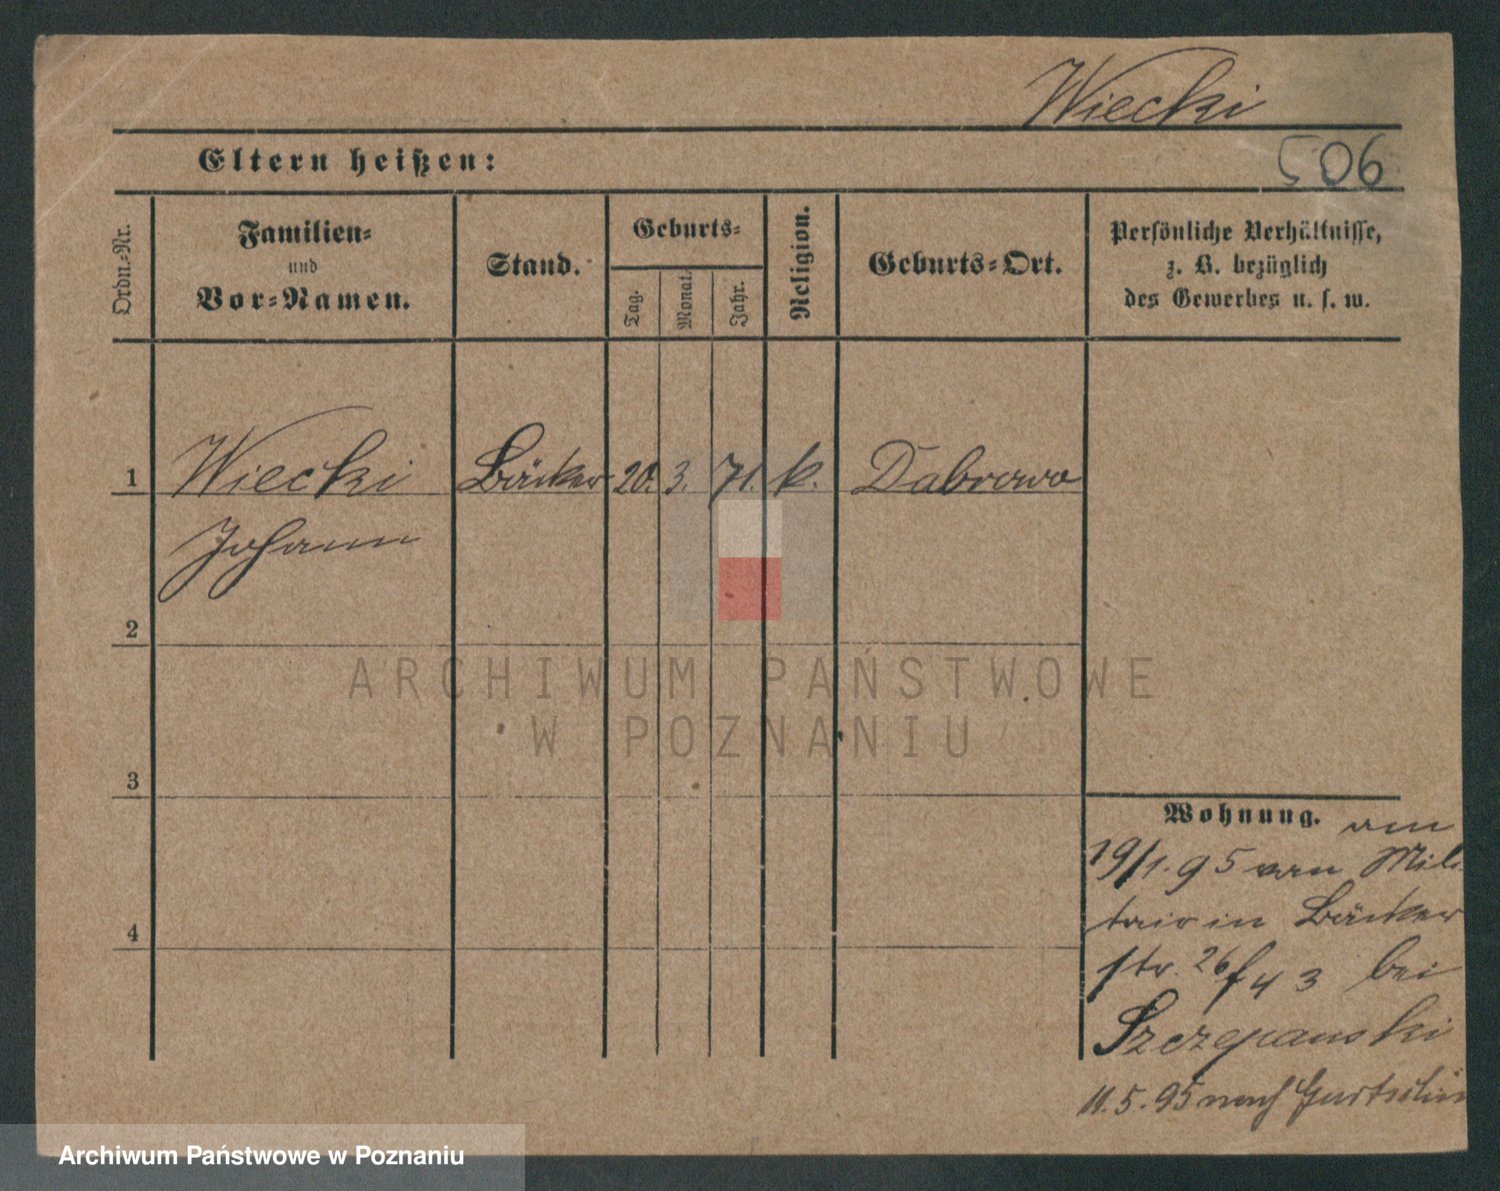 Wiecki
Eltern heißen:
506
Ordn.-Nr.
Familien-
und
Vor-Namen.
Stand.
Geburts-
Tag.
Monat.
Jahr.
Religion.
Geburts-Ort.
Persönliche Verhältnisse,
z. B. bezüglich
des Gewerbes u. s. w.
1 Wiecki Bäcker 20. 3. 71. k. Dabrowo
Johann
2
ARCHIWUM PAŃSTWOWE
W POZNANIU
3
4
Wohnung. am
19/1.95 vom Mili
tair in Bäcker
str. 26 bei
Szczepanski
11.5.95 nach
Archiwum Państwowe w Poznaniu